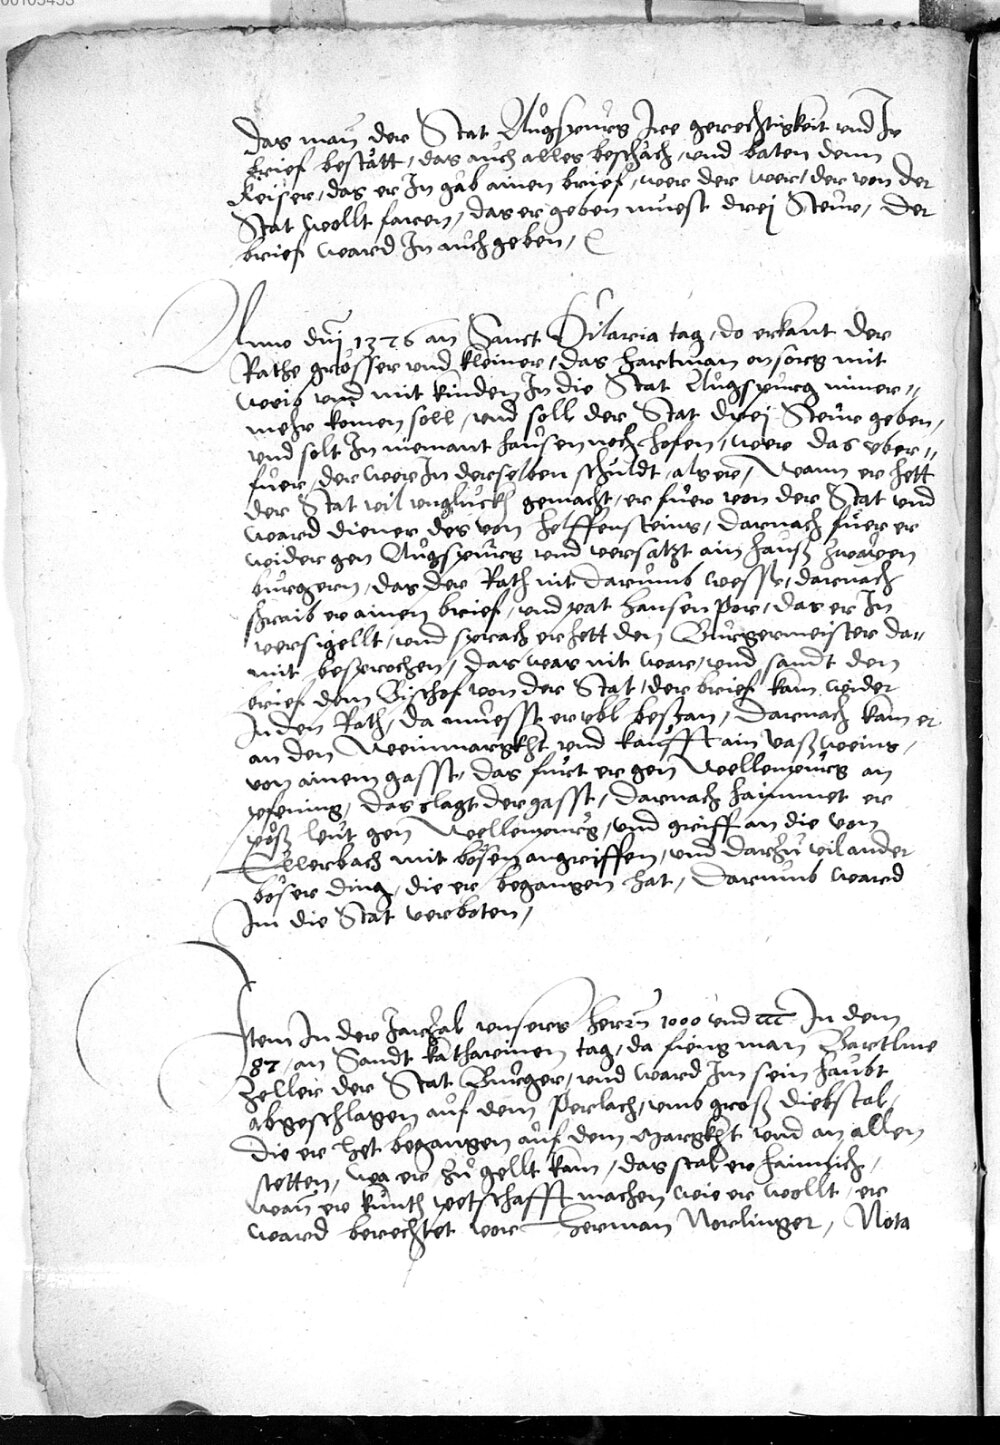 00105453
das man der Stat Augspurg Ire gerechtigkeit vnd Ir
brief bestätt, das auch alles beschach, vnd baten denn
Keiser, das er In gäb ainen brief, wer der wer, der von der
Stat wollt faren, das er geben muest drej Steur, der
brief ward In auch geben,
Anno dni 1376 an Sanct Hilaria tag, do erkant der
Rathe grosser vnd kleiner, das Hartman onsorg mit
weib vnd mit kinden In die Stat Augspurg nimer//
mehr komen soll, vnd soll der Stat drej Steur geben,
vnd solt In niemant hausen noch hofen, were das vber//
fuer, der wer In derselben schuldt, als er, Wann er hett
der Stat vil vngluckh gemacht, er fuer von der Stat vnd
ward diener des von Helffensteins, darnach fuer er
wider gen Augspurg vnd versatzt ain hauß zwayen
burgern, das der Rath nit darumb wesst, darnach
schraib er ainen brief, vnd pat Hansen Por, das er In
versigellt, vnd sprach er hett den Burgermeister da//
mit besprochen, das was nit war, vnd sandt den
brief dem Bischof von der Stat, der brief kam wider
In den Rath, da muesst er vbl bestan, Darnach kam er
an den Weinmargkht vnd kaufft ain vaß weins,
von ainem gasst, das furt er gen Wellenpurg an
pfening, das clagt der gasst, Darnach haimmet er
poß leut gen Wellenpurg, vnd griff an die von
Ellerbach mit bösen angriffen, vnd darzu vil ander
böser ding, die er begangen hat, Darumb ward
Im die Stat verboten,
Item In der Jarzal vnsers herrn 1000 vnd ccc In dem
87, an Sandt katharinen tag, da fieng man Bartlme
Zeller der Stat Burger, vnd ward Im sein haubt
abgeschlagen auf dem Perlach, vmb groß diebstal,
die er het begangen auf dem Margkht vnd an allen
stetten, wa er zu gellt kam, das stal er haimlich,
wan er kunth petschafft machen wie er wollt, er
ward berechtet vor Herman Norlinger, Nota